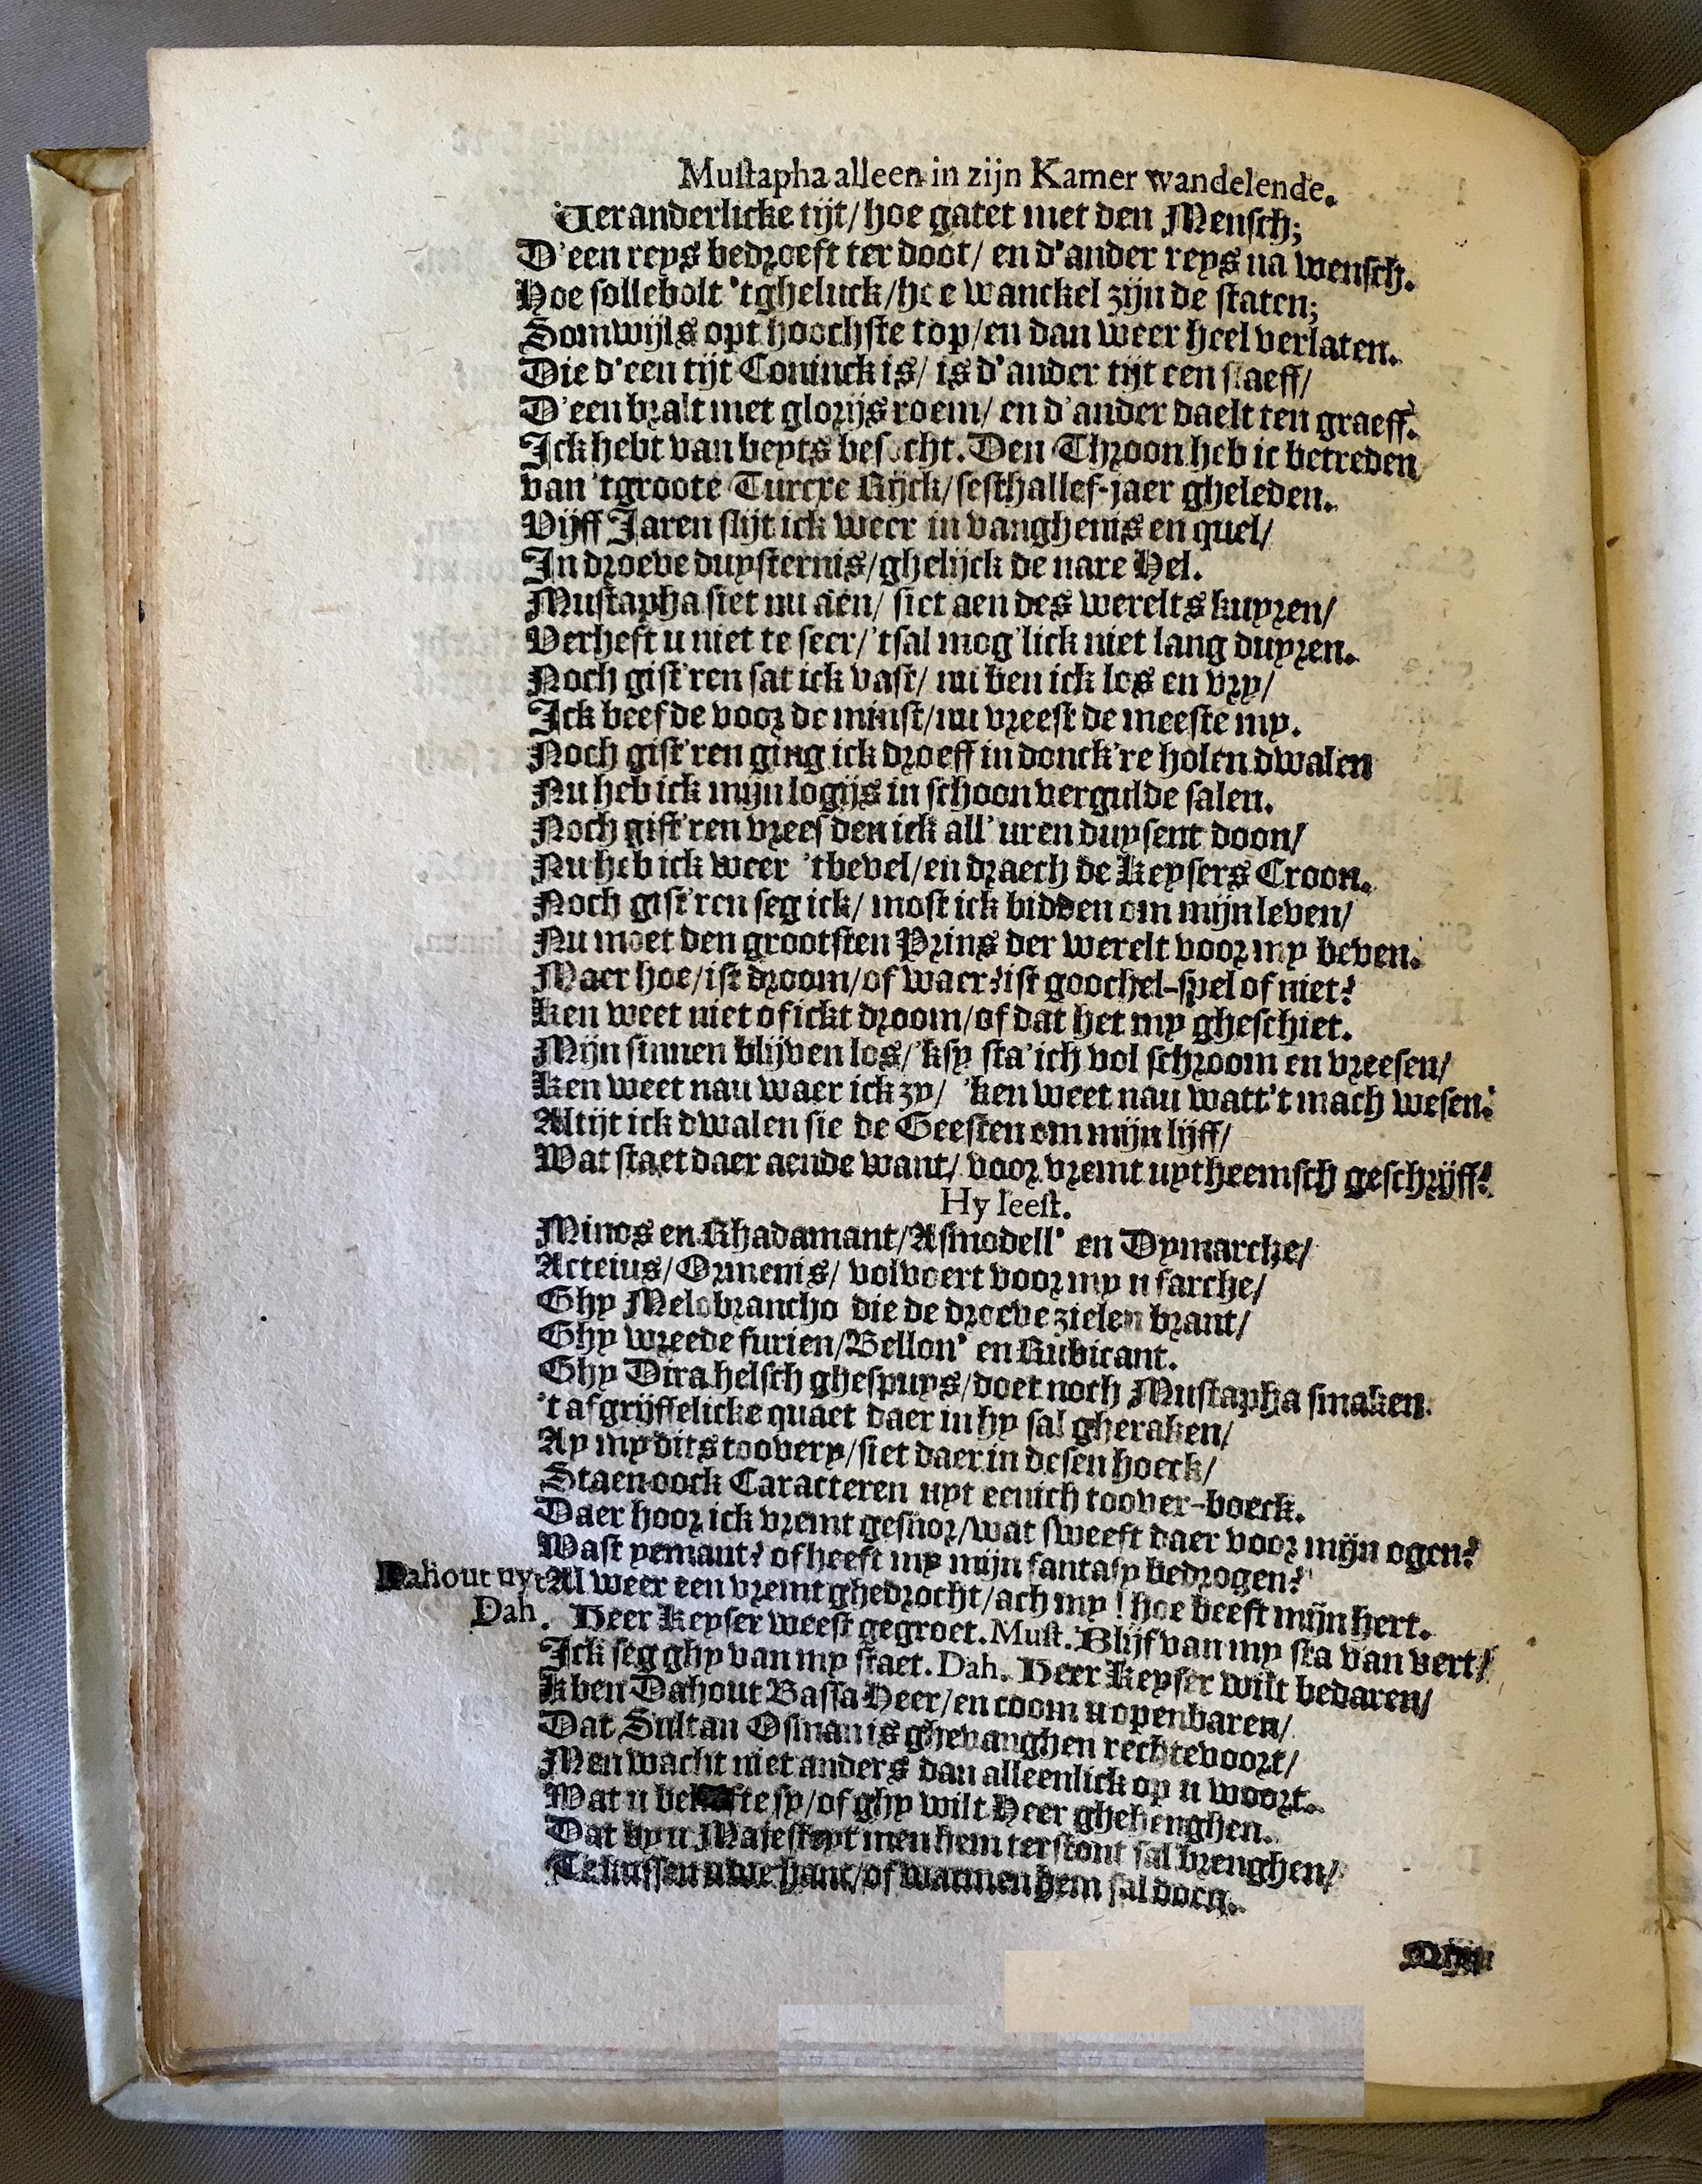 Mustapha alleen in zijn Kamer wandelende.
Veranderlicke tijt/ hoe gatet met den Mensch;
D'een reys bedroeft ter doot/ en d'ander reys na wensch.
Hoe sollebolt 'tgheluck/ hoe wanckel zijn de staten;
Somwijls opt hoochste top/ en dan weer heel verlaten.
Die d'een tijt Coninck is/ is d'ander tijt een slaeff/
D'een bralt met glorijs roem/ en d'ander daelt ten graeff.
Ick hebt van beyts besocht. Den Throon heb ic betreden
van 'tgroote Turcxe Rijck/ sesthallef-jaer gheleden.
Vijff Jaren slijt ick weer in vanghenis en quel/
In droeve duysternis/ ghelijck de nare Hel.
Mustapha siet nu aen/ siet aen des werelts kuyren/
Verheft u niet te seer/ 'tsal mog'lick niet lang duyren.
Noch gist'ren sat ick vast/ nu ben ick los en vry/
Ick beefde voor de minst/ nu vreest de meeste my.
Noch gist'ren ging ick droeff in donck're holen dwalen
Nu heb ick mijn logijs in schoon vergulde salen.
Noch gist'ren vreesden ick all' uren duysent doon/
Nu heb ick weer 'tbevel/ en draech de Keysers Croon.
Noch gist'ren seg ick/ most ick bidden om mijn leven/
Nu moet den grootsten Prins der werelt voor my beven.
Maer hoe/ ist droom/ of waer? ist goochel-spel of niet?
Ken weet niet of ickt droom/ of dat het my gheschiet.
Mijn sinnen blijven los/ 'ksy sta'ich vol schroom en vreesen/
Ken weet nau waer ick zy/ 'ken weet nau watt't mach wesen.
Altijt ick dwalen sie de Geesten om mijn lijff/
Wat staet daer aende want/ voor vremt uytheemsch geschrijff!
Hy leest.
Minos en Rhadamant/ Asmodell' en Dymarche/
Acteius/ Ormenis/ volvoert voor my u farche/
Ghy Melobrancho die de droeve zielen brant/
Ghy wreede furien/ Bellon' en Rubicant.
Ghy Dira helsch ghespuys/ doet noch Mustapha smaken
't afgrijffelicke quaet daer in hy sal gheraken/
Ay my dits toovery/ siet daer in desen hoeck/
Staen oock Caracteren uyt eenich toover-boeck.
Daer hoor ick vremt gesnor/ wat sweeft daer voor mijn ogen?
Wast yemant? of heeft my mijn fantasy bedrogen?
Dahout uyt Al weer een vremt ghedrocht/ ach my! hoe beeft mijn hert.
Dah. Heer Keyser weest gegroet. Must. Blijf van my sta van vert/
Ick seg ghy van my staet. Dah. Heer Keyser wilt bedaren/
Kben Dahout Bassa Heer/ en coom u openbaren/
Dat Sultan Osman is ghevanghen rechtevoort/
Men wacht niet anders dan alleenlick op u woort.
Wat u beliefte sy/ of ghy wilt Heer ghehenghen.
Dat by u Majesteyt men hem terstont sal brenghen/
Te kussen uwe hant/ of watmen hem sal doen.